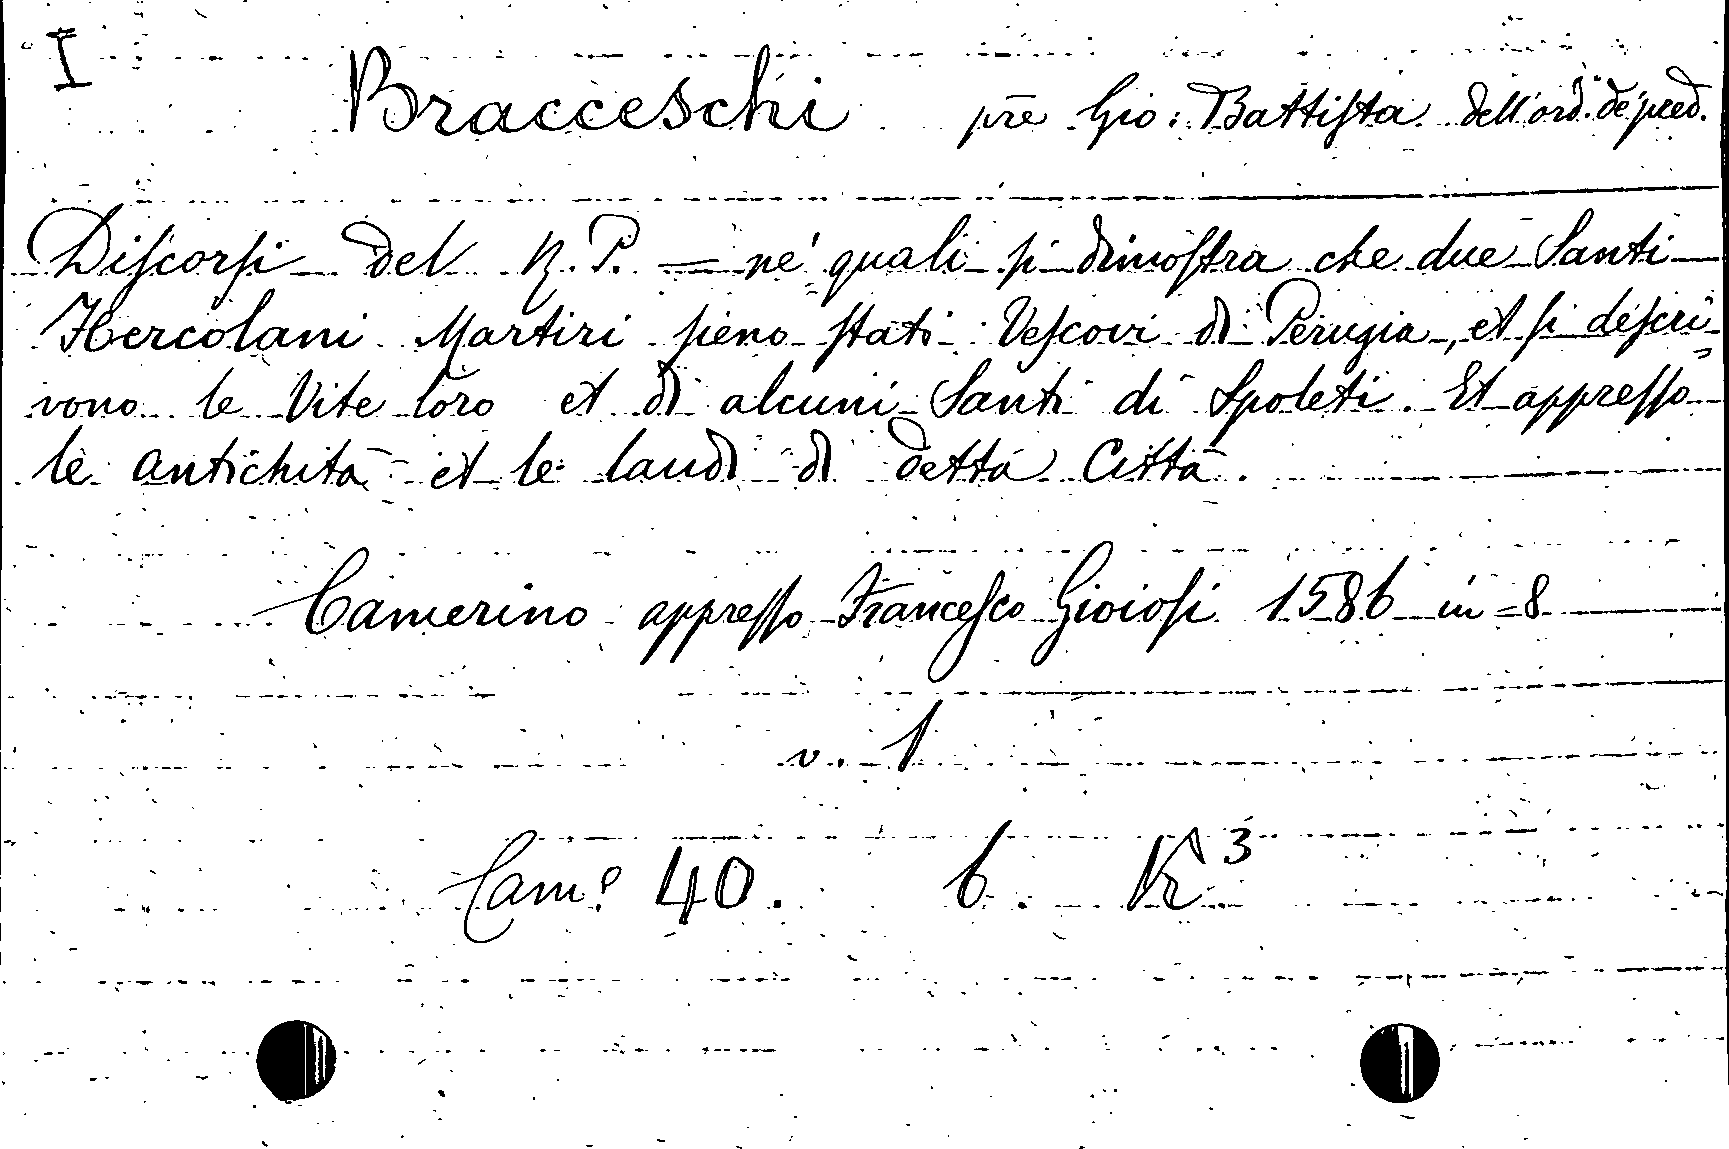 I
Bracceschi pr̄e Gio: Battiſta dell'ord. de' pred.
Diſcorſi del R. P. — ne' quali ſi dimoſtra che due Santi
Hercolani Martiri ſieno ſtati Veſcovi di Perugia, et ſi deſcri-
vono le Vite loro et di alcuni Santi di Spoleti. Et appreſſo
le antichità et le laudi di detta Città.
Camerino appreſſo Franceſco Gioioſi 1586 in-8
v. 1
Cam.e 40. b. K³